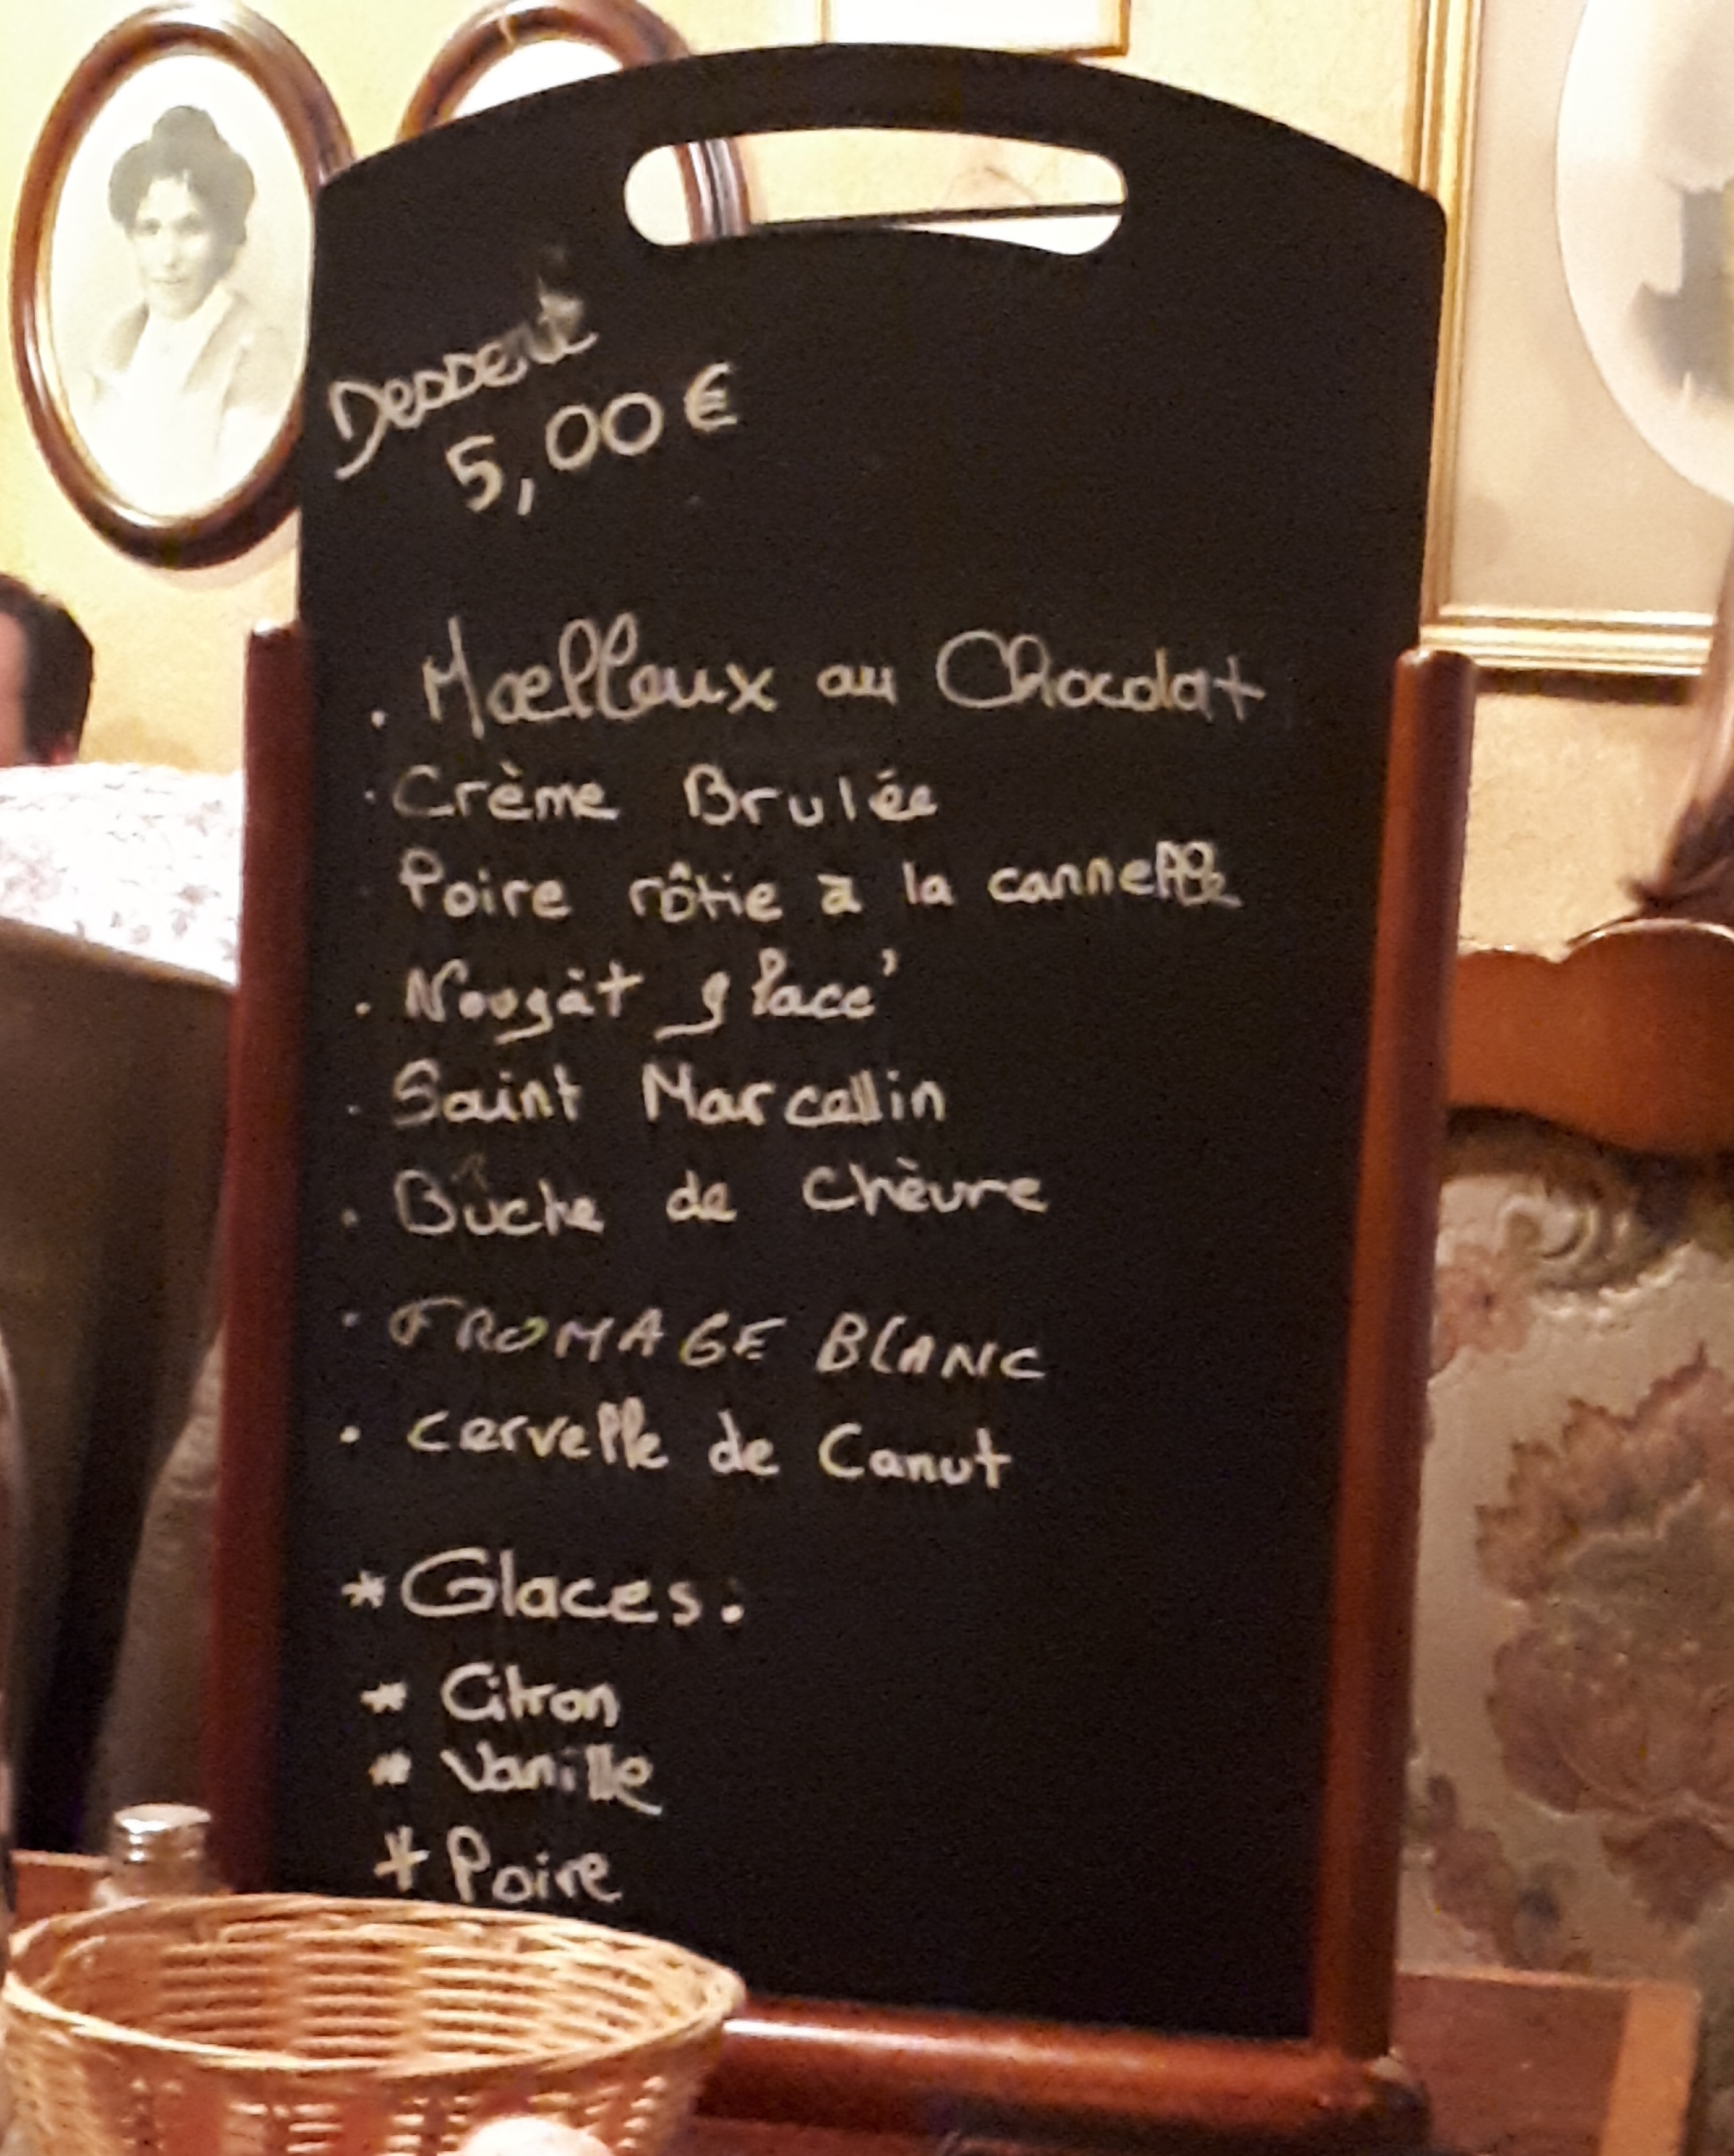 Dessert
5,00 €
. Mœlleux au Chocolat
. Crème Brulée
Poire rôtie à la cannelle
. Nougât glacé
. Saint Marcellin
. Bûche de Chèvre
. FROMAGE BLANC
. cervelle de Canut
* Glaces :
* Citron
* Vanille
* Poire